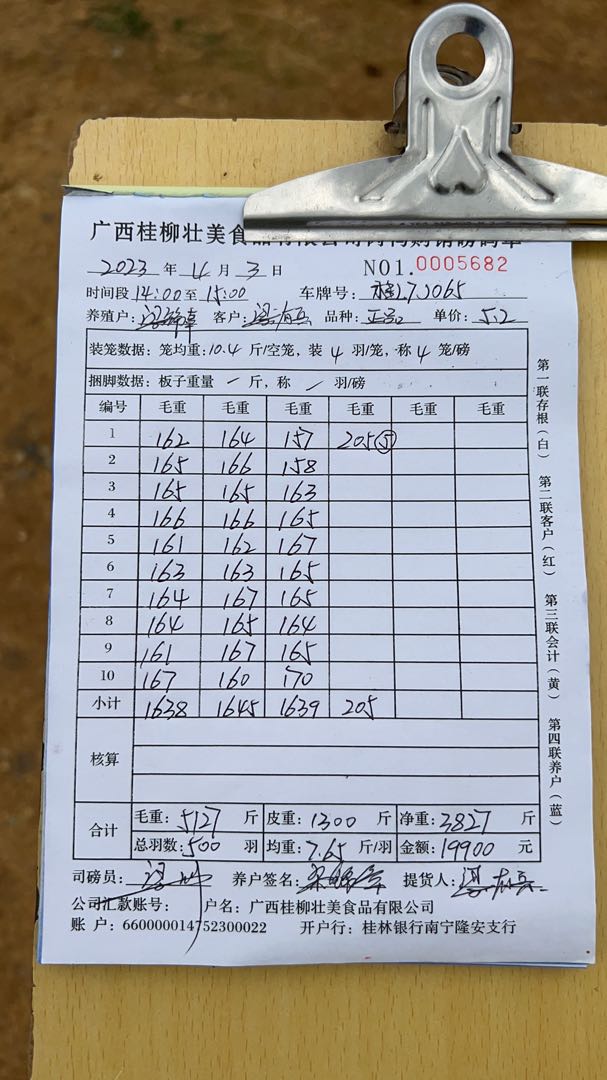 广西桂柳壮美食品有限公司肉鸭购销磅码单
2023 年 4 月 3 日 NO1.0005682
时间段 14:00 至 15:00 车牌号：桂L7J065
养殖户： 客户： 品种：正品 单价：5.2
装笼数据：笼均重：10.4 斤/空笼，装 4 羽/笼，称 4 笼/磅
捆脚数据：板子重量 一 斤，称 / 羽/磅
编号 毛重 毛重 毛重 毛重 毛重 毛重
1 162 164 157 205⑤
2 165 166 158
3 165 165 163
4 166 166 165
5 161 162 167
6 163 163 165
7 164 167 165
8 164 165 164
9 161 167 165
10 167 160 170
小计 1638 1645 1639 205
核算
合计 毛重：5127 斤 皮重：1300 斤 净重：3827 斤
总羽数：500 羽 均重：7.65 斤/羽 金额：19900 元
司磅员： 养户签名： 提货人：
公司汇款账号： 户名：广西桂柳壮美食品有限公司
账 户：660000014752300022 开户行：桂林银行南宁隆安支行
第一联存根（白） 第二联客户（红） 第三联会计（黄） 第四联养户（蓝）